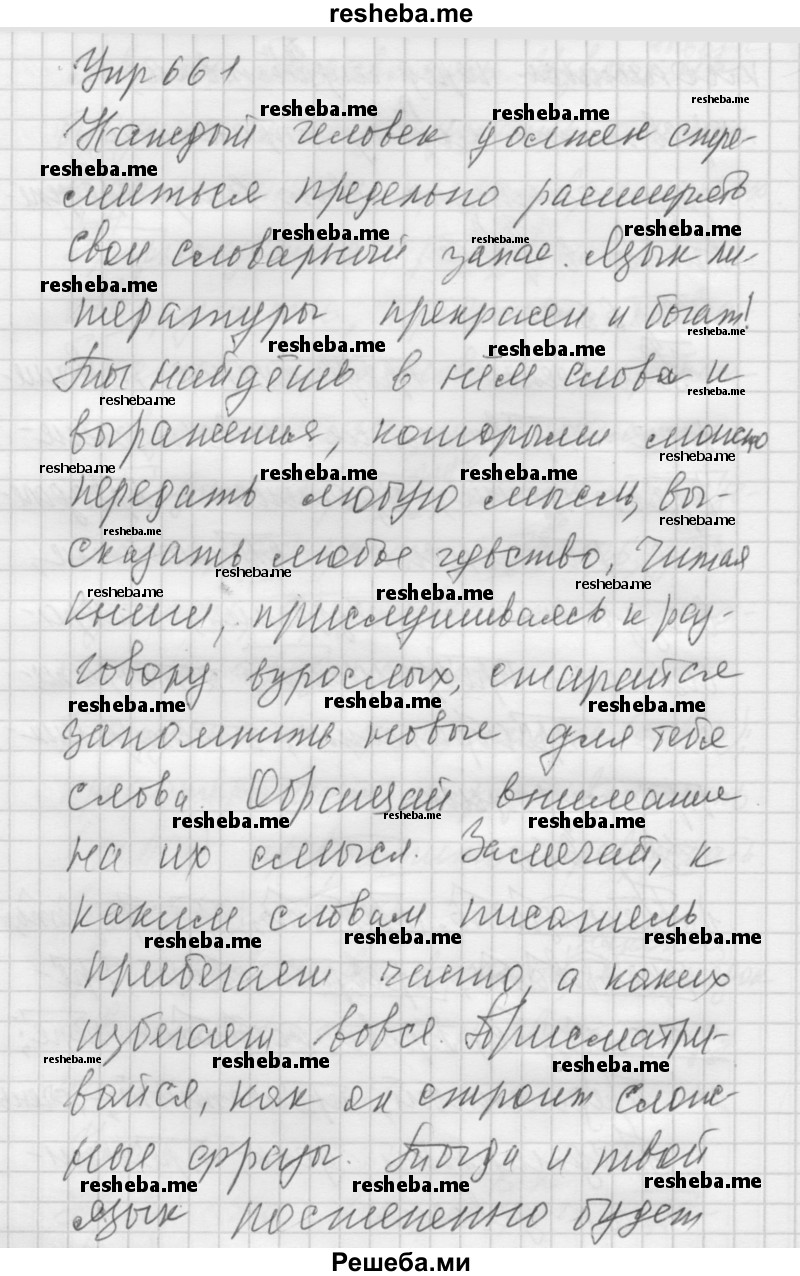 resheba.me
Упр 661
resheba.me resheba.me resheba.me
Каждый человек должен стре-
resheba.me
миться предельно расширять
resheba.me resheba.me resheba.me
свой словарный запас. Язык ли-
resheba.me
тературы прекрасен и богат!
resheba.me resheba.me resheba.me
Ты найдёшь в нём слова и
resheba.me resheba.me
выраженья, которыми можно
resheba.me resheba.me resheba.me resheba.me
передать любую мысль, вы-
resheba.me resheba.me
сказать любое чувство. Читая
resheba.me resheba.me resheba.me resheba.me
книги, прислушиваясь к раз-
говору взрослых, старайся
resheba.me resheba.me resheba.me
запомнить новые для тебя
слова. Обращай внимание
resheba.me resheba.me resheba.me
на их смысл. Замечай, к
каким словам писатель
resheba.me resheba.me resheba.me
прибегает часто, а каких
избегает вовсе. Присматри-
resheba.me resheba.me resheba.me
вайся, как он строит слож-
ные фразы. Тогда и твой
resheba.me resheba.me resheba.me
язык постепенно будет
Решеба.ми